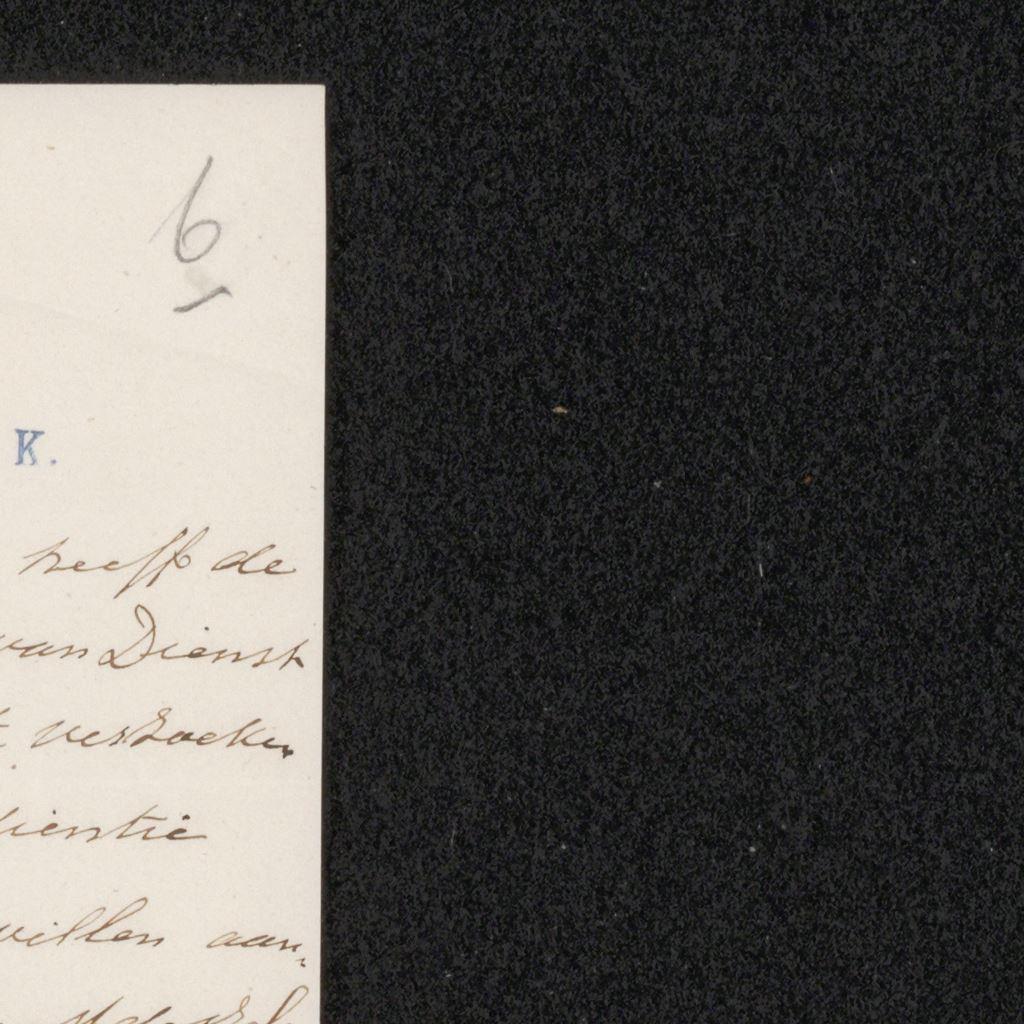 6
K.
heeft de
van Dienst
verzoeken
willen aan„